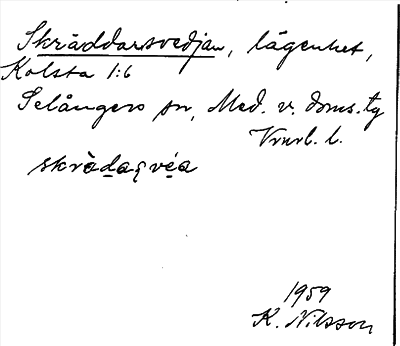 Skräddarsvedjan, lägenhet,
Kolsta 1:6
Selångers sn, Med. v. doms. tg
Vnrl. l.
skrὰdaʂvéa
1959
K. Nilsson